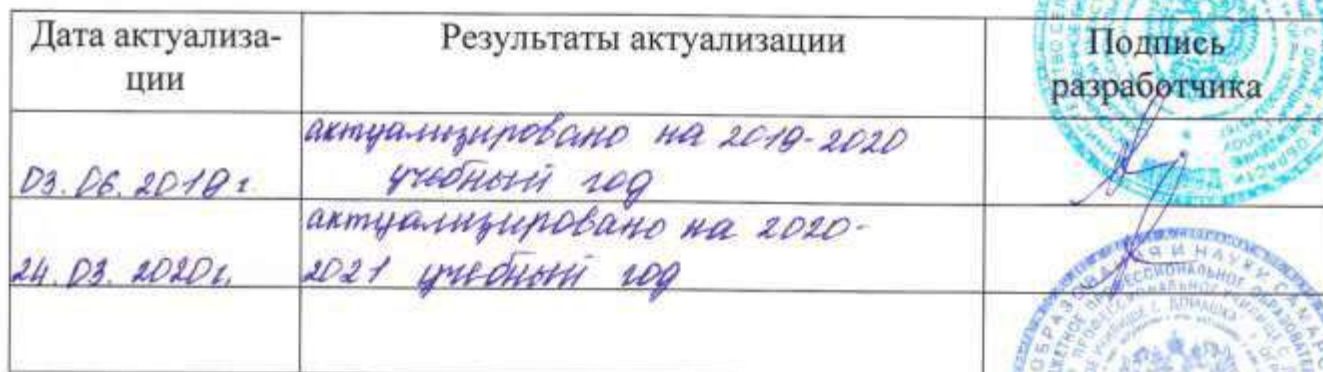 Дата актуализа-
ции
Результаты актуализации
Подпись
разработчика
03.06.2019 г.
актуализировано на 2019-2020
учебный год
24.03.2020г.
актуализировано на 2020-
2021 учебный год